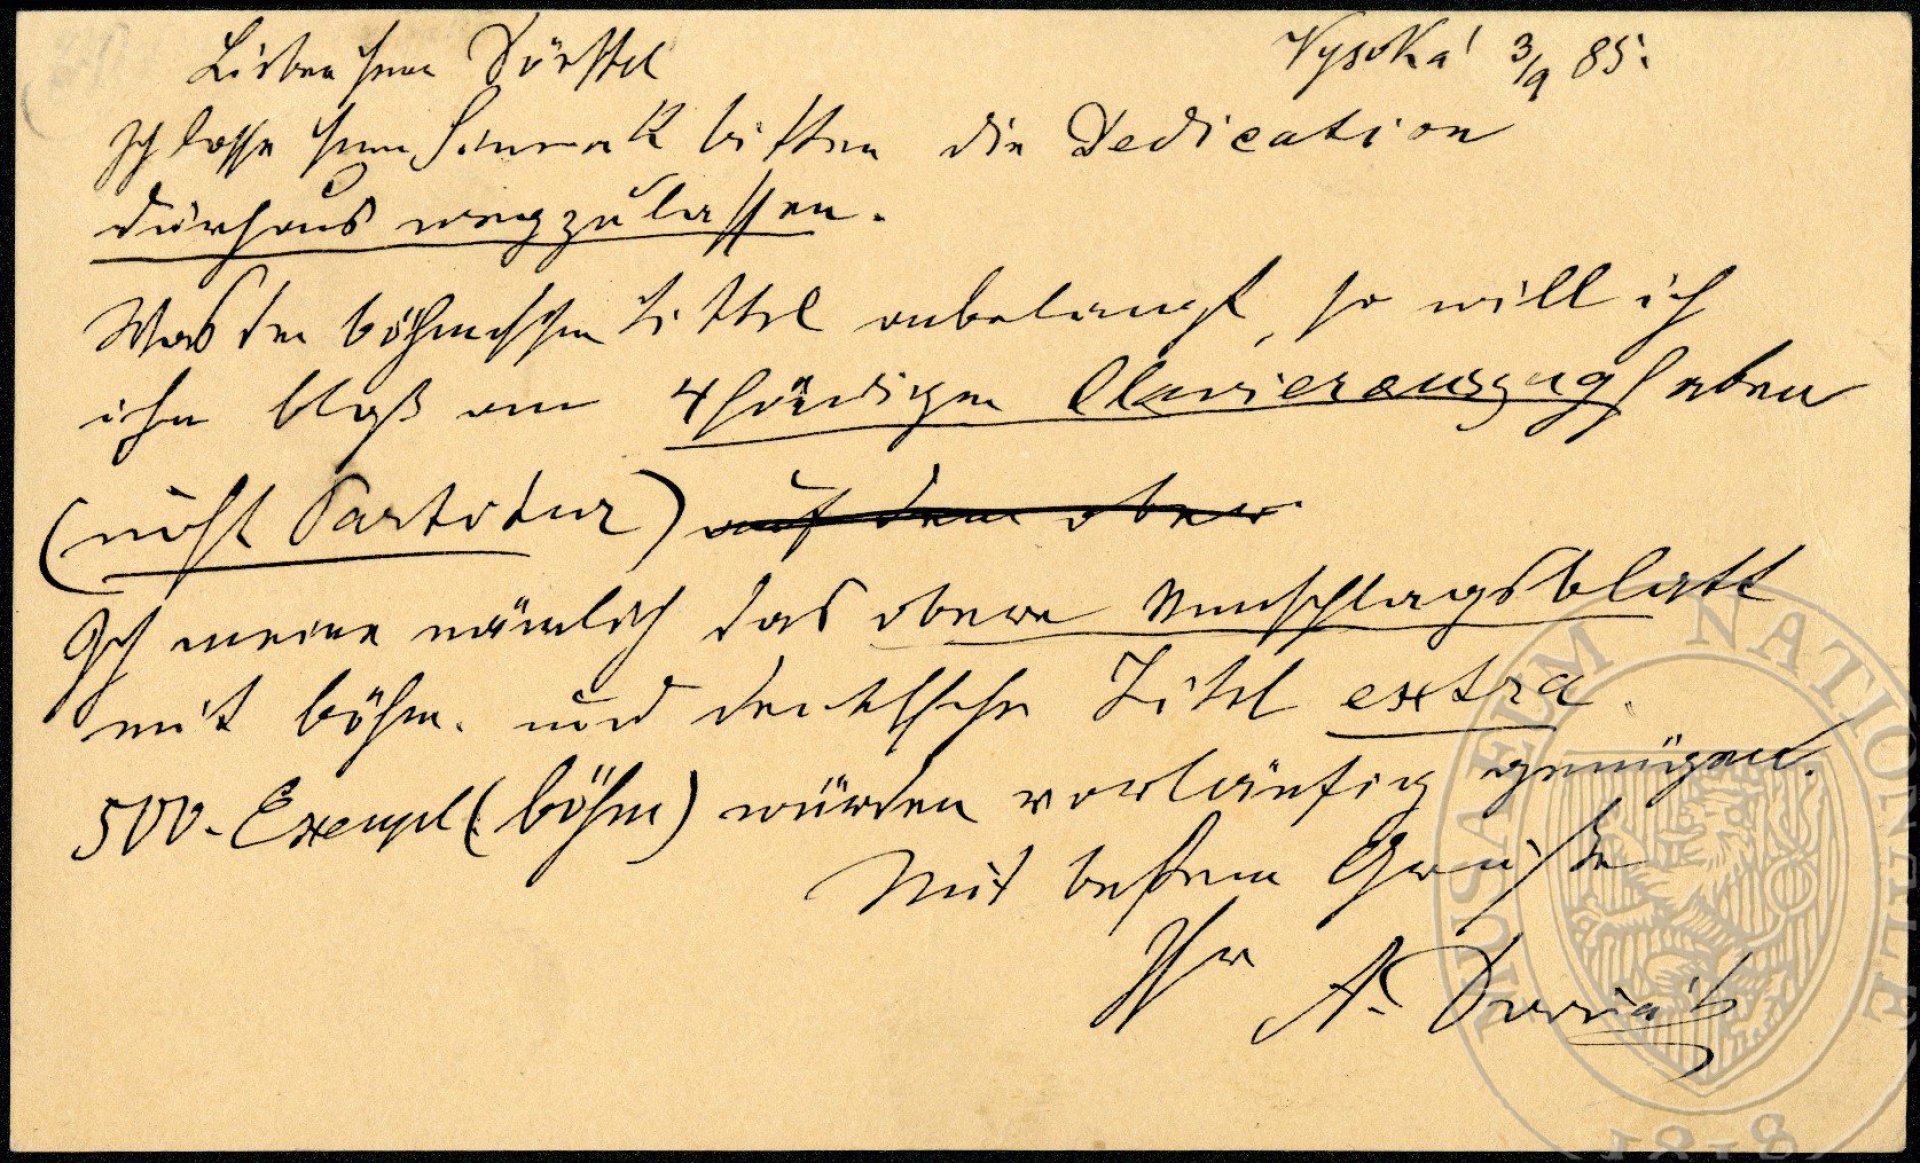 Lieber Herr Dörffel
Vysoká 3/9 85.
Ich lasse Herrn Simrock bitten die Dedication
durhaus wegzulassen.
Was den böhmischen Tittel anbelangt, so will ich
ihn bloß am 4händigen Clavierauszug haben
(nicht Partitur) auf dem obere
Ich meine nämlich das obere Umschlagsblatt
mit böhm. und deutsche Titel extra.
500. Exempl (böhm) würden vorläufig genügen.
Mit bestem Gruße
Ihr A. Dvořák
MUSAEUM NATIONALE
1818